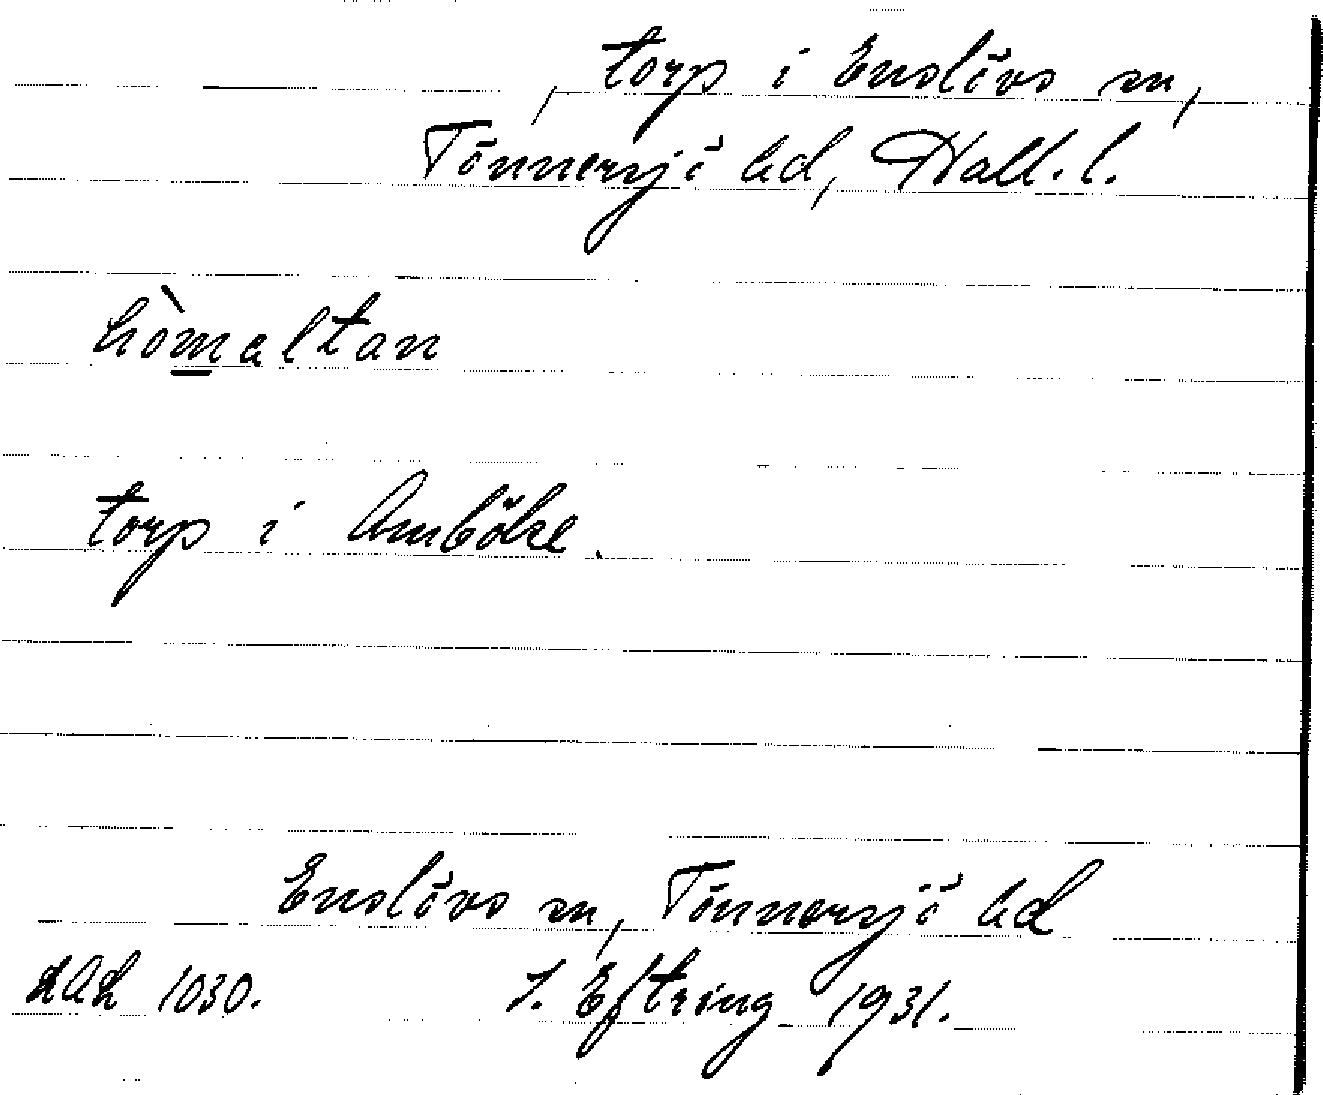 , torp i Enslövs sn,
Tönnersjö hd, Hall. l.
hòmaltan
torp i Amböke.
Enslövs sn, Tönnersjö hd
LAL 1030. J. Eftring 1931.